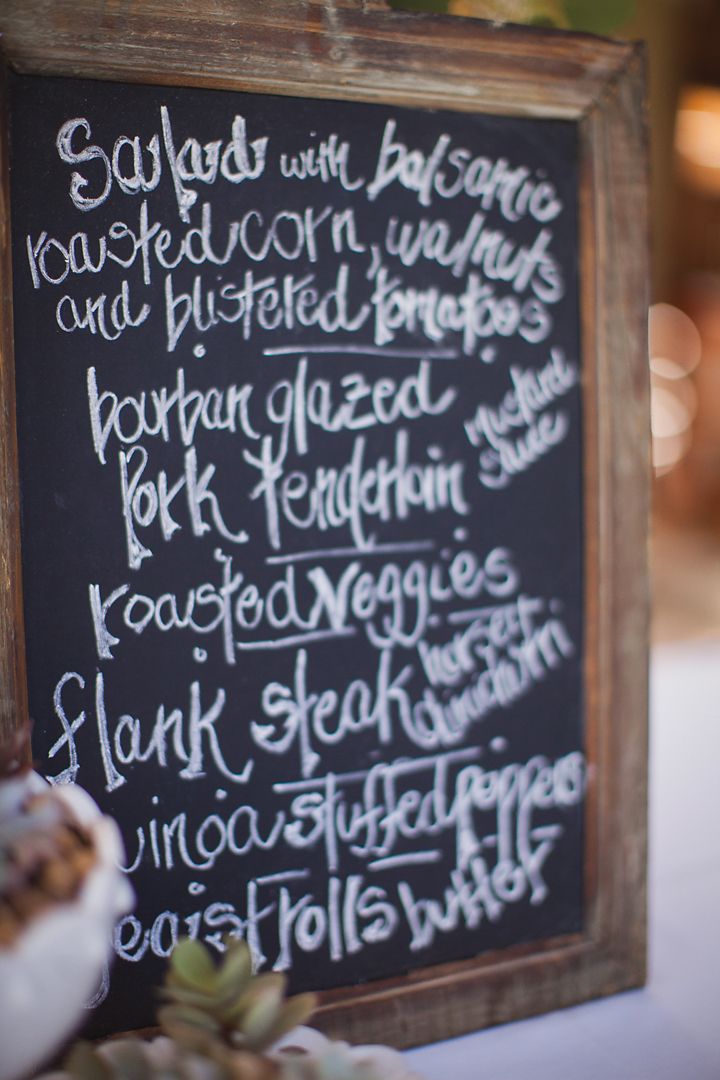 Salad with balsamic
roasted corn, walnuts
and blistered tomatoes
bourban glazed
Pork Tenderloin
Mustard
sauce
roasted veggies
flank steak
uinoa stuffed peppers
yeaist rolls butter